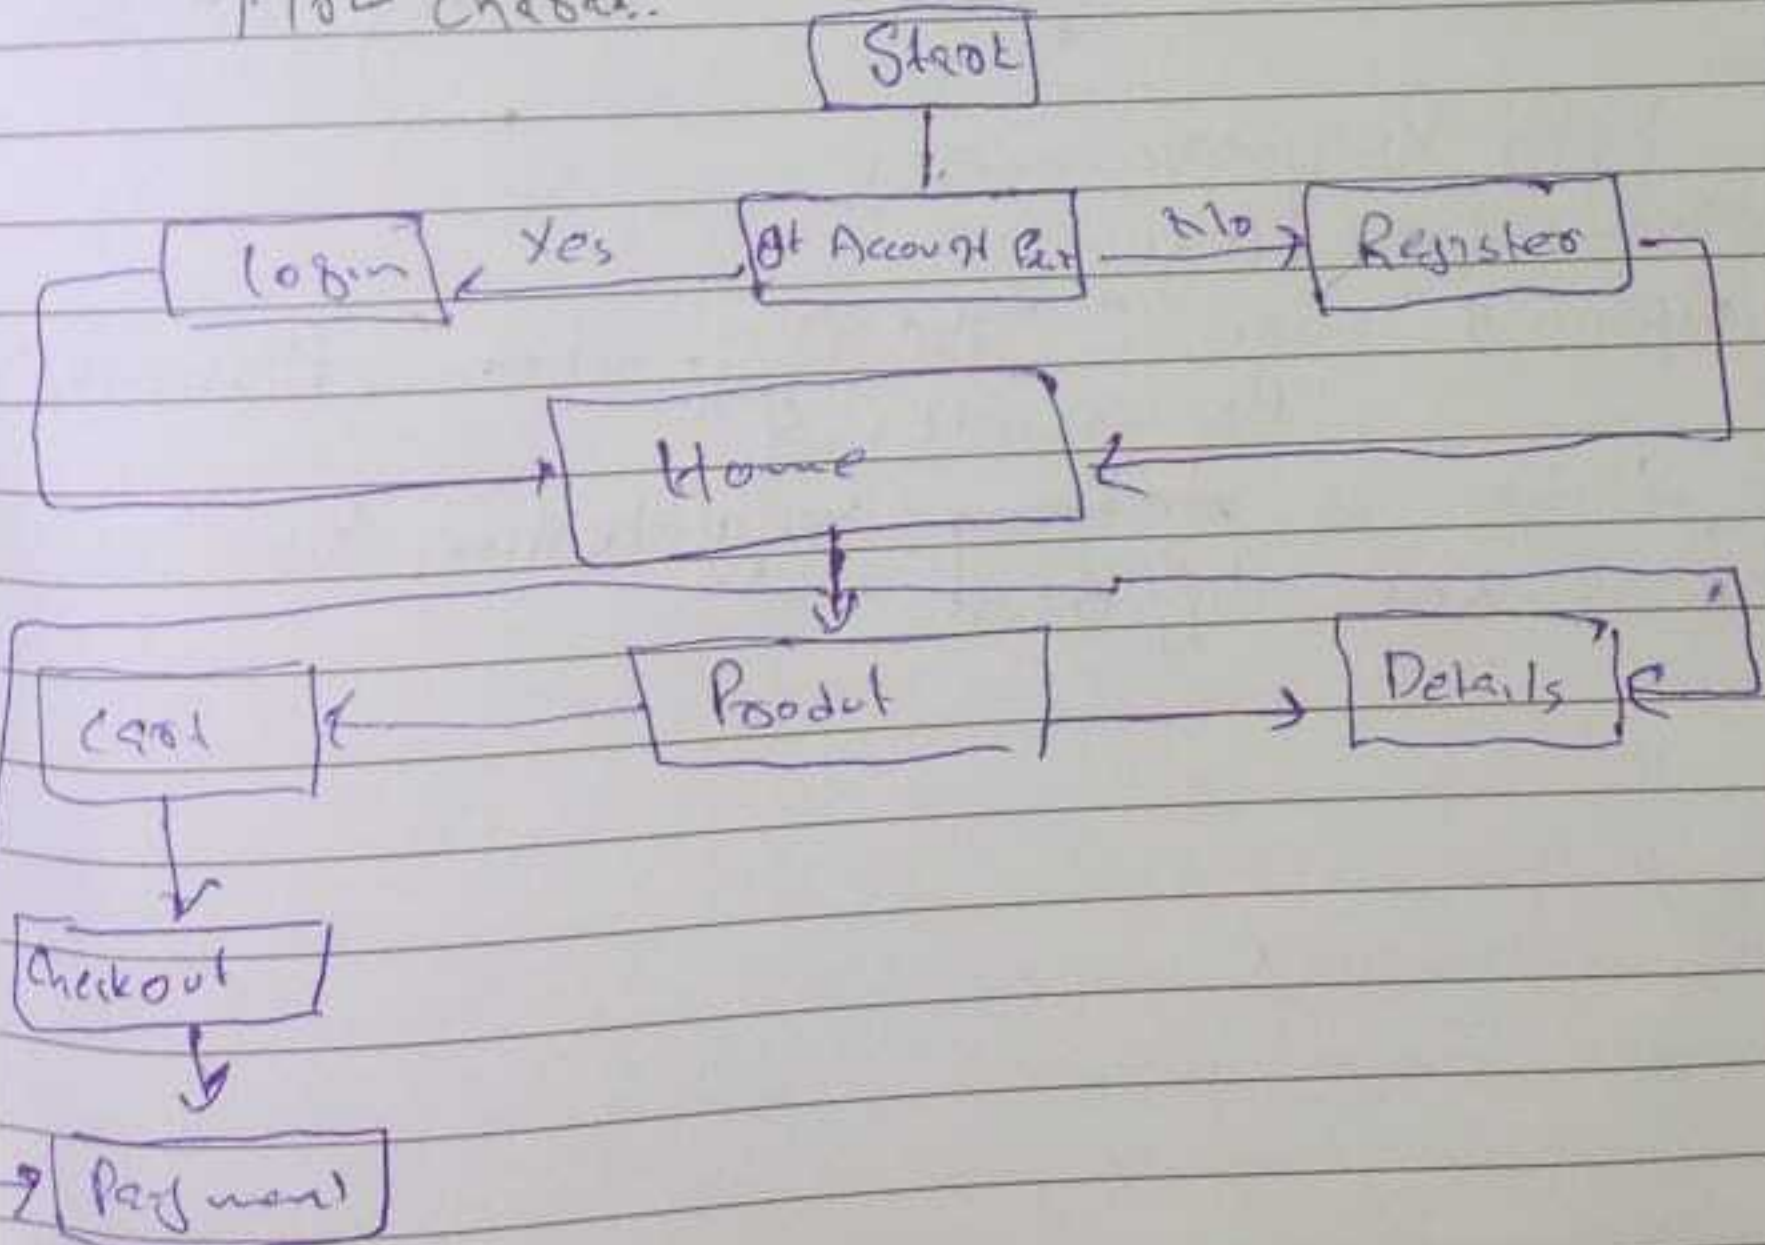 Flow
Start
Login
Yes
Account
No
Register
Home
Cart
Produt
Details
Checkout
Payment